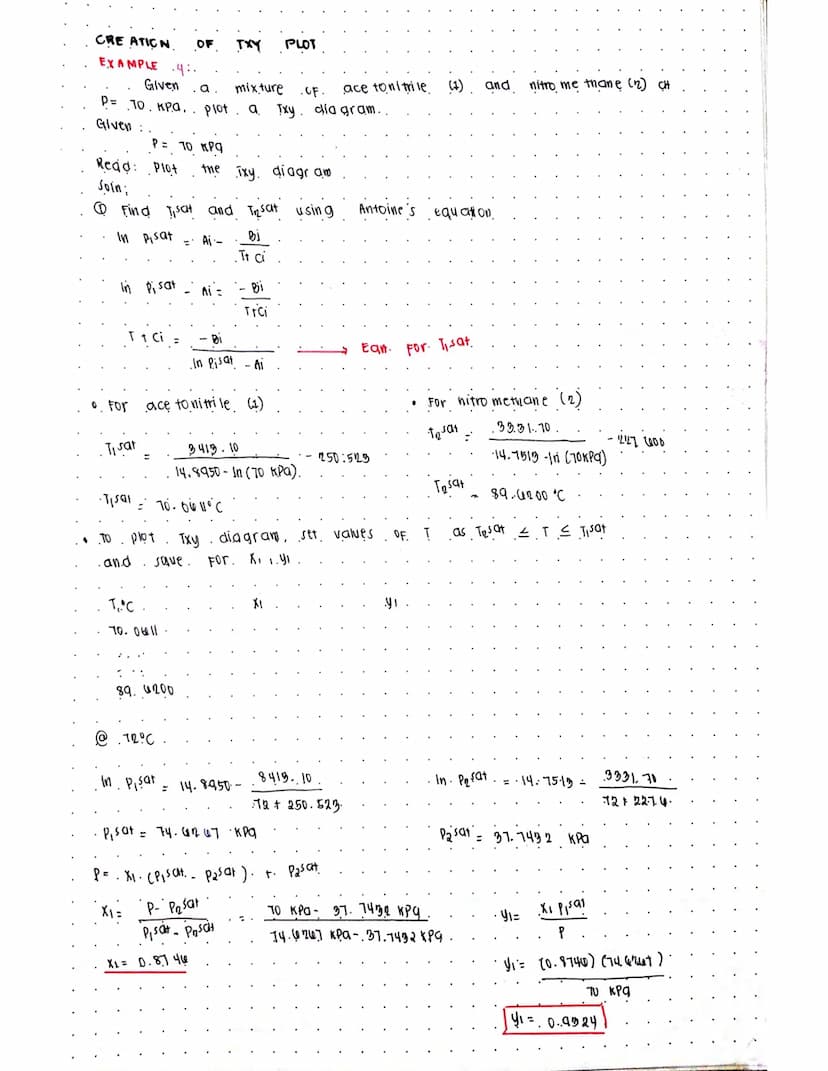 CREATION OF TXY PLOT
EXAMPLE 4:
Given a mixture of acetonitrile (1) and nitromethane (2) at
P= 70 kPa, plot a Txy diagram.
Given:
P= 70 kPa
Reqd: Plot the Txy diagram
Soln;
① Find T1sat and T2sat using Antoine's equation
ln Pisat = Ai - Bi / T+Ci
ln Pisat - Ai = -Bi / T+Ci
T+Ci = -Bi / ln Pisat - Ai → Eqn. for Tisat
• For acetonitrile (1)
T1sat = 3413.10 / 14.8950 - ln (70 kPa) - 250.523
T1sat = 70.0611°C
• For nitromethane (2)
T2sat = 3331.70 / 14.7513 - ln (70kPa)
T2sat = 89.6200 °C
• To plot Txy diagram, set values of T as T2sat ≤ T ≤ T1sat
and solve for x1, y1
T, °C x1 y1
70.0611
89.6200
@ 72°C
ln P1sat = 14.8950 - 3413.10 / 72 + 250.523
P1sat = 74.6267 kPa
P= x1 (P1sat - P2sat) + P2sat
x1= P- P2sat / P1sat - P2sat = 70 kPa - 37.7432 kPa / 74.6267 kPa - 37.7432 kPa
x1= 0.8746
ln P2sat = 14.7513 - 3331.70 / 72 + 227.6
P2sat = 37.7432 kPa
y1= x1 P1sat / P
y1= (0.8746) (74.6267) / 70 kPa
y1= 0.9324